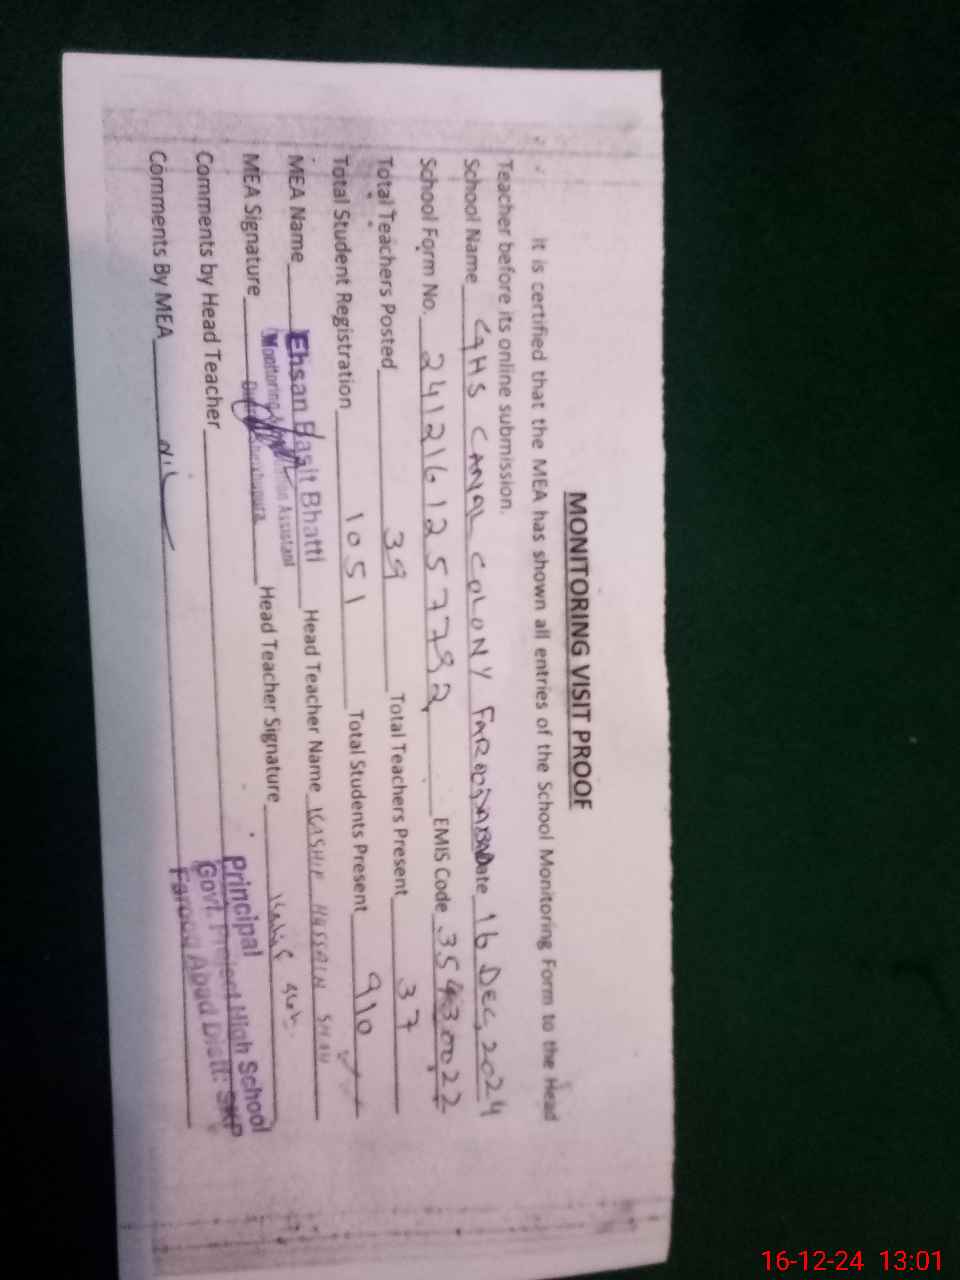 MONITORING VISIT PROOF
It is certified that the MEA has shown all entries of the School Monitoring Form to the Head
Teacher before its online submission.
School Name GHS CANAL COLONY FAROOQABAD Date 16 DEC, 2024
School Form No. 2412161257792 EMIS Code 35430022
Total Teachers Posted 39 Total Teachers Present 37
Total Student Registration 1051 Total Students Present 910
MEA Name Ehsan Basit Bhatti Head Teacher Name KASHIF HUSSAIN SHAH
Monitoring Assistant
MEA Signature Head Teacher Signature
Principal
Comments by Head Teacher Govt. Project High School
Farooq Abad Distt: SKP
Comments By MEA Nil
16-12-24 13:01